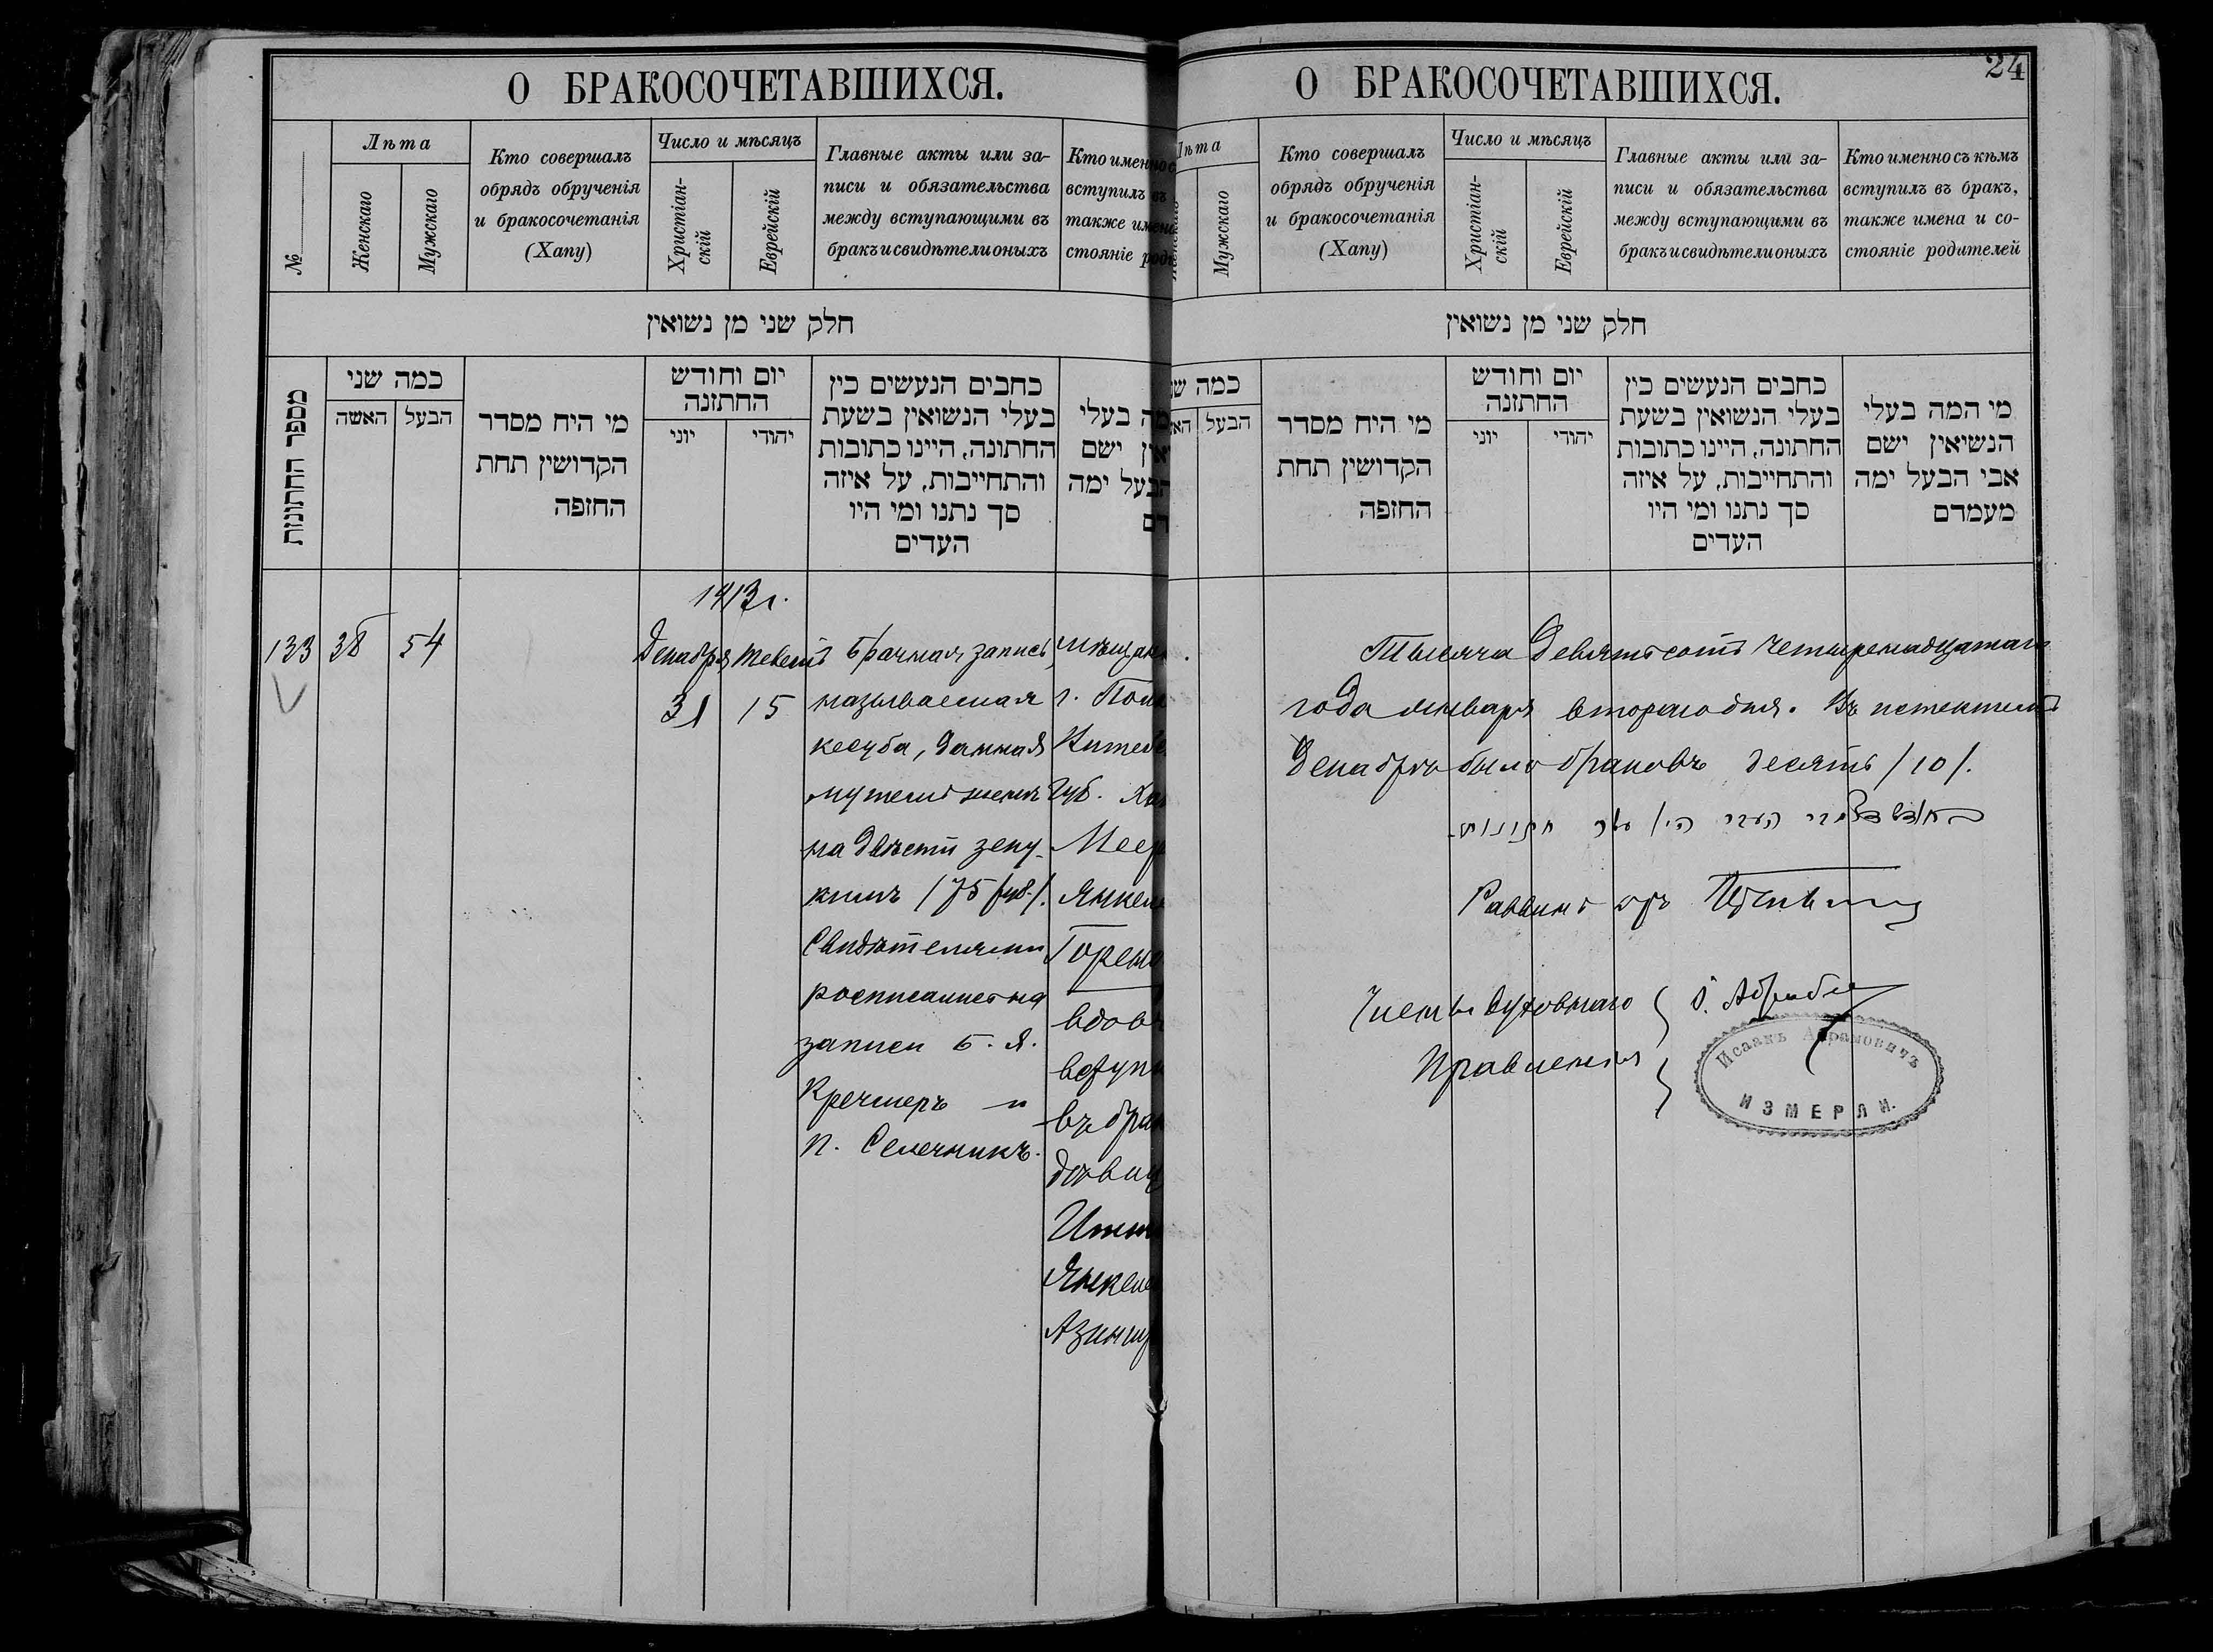 О БРАКОСОЧЕТАВШИХСЯ.
№
Лѣта
Женскаго
Мужскаго
Кто совершалъ
обрядъ обрученія
и бракосочетанія
(Хапу)
Число и мѣсяцъ
Христіан-
скій
Еврейскій
Главные акты или за-
писи и обязательства
между вступающими въ
бракъ и свидѣтели оныхъ
Кто именно с
вступилъ въ
также имена
стояніе род
חלק שני מן נשואין
מספר החתונות
כמה שני
האשה
הבעל
מי היח מסדר
הקדושין תחת
החזפה
יום וחודש
החתזנה
יוני
יהודי
כחבים הנעשים כין
בעלי הנשואין בשעת
החתונה, היינו כתובות
והתחייבות, על איזה
סך נתנו ומי היו
העדים
מה בעלי
אין ישם
הבעל ימה
דם
1913 г.
133
38
54
Декабря
31
Теветъ
15
Брачная запись
называемая
кесуба, данная
мужемъ женѣ
на двѣсти зеку-
кимъ /75 руб./.
Свидѣтелями
росписались на
записи Б. Я.
Кремеръ и
П. Селечникъ.
Мѣщан
г. Поло
Витебс
Губ.
Меер
Янкеле
Горен
вдов
вступи
въ бра
дѣвиц
Янкеле
О БРАКОСОЧЕТАВШИХСЯ.
24
Лѣта
Мужскаго
Кто совершалъ
обрядъ обрученія
и бракосочетанія
(Хапу)
Число и мѣсяцъ
Христіан-
скій
Еврейскій
Главные акты или за-
писи и обязательства
между вступающими въ
бракъ и свидѣтели оныхъ
Кто именно съ кѣмъ
вступилъ въ бракъ,
также имена и со-
стояніе родителей
חלק שני מן נשואין
כמה ש
הבעל
מי היח מסדר
הקדושין תחת
החזפה
יום וחודש
החתזנה
יוני
יהודי
כחבים הנעשים כין
בעלי הנשואין בשעת
החתונה, היינו כתובות
והתחייבות, על איזה
סך נתנו ומי היו
העדים
מי המה בעלי
הנשיאין ישם
אבי הבעל ימה
מעמדם
Тысяча Девятьсотъ четырнадцатаго
года января второго дня. Въ истекшемъ
Декабрѣ было браковъ десять /10/.
Раввинъ
Члены Духовнаго
Правленія
Исаакъ Абрамовичъ
ИЗМЕРЛИ.